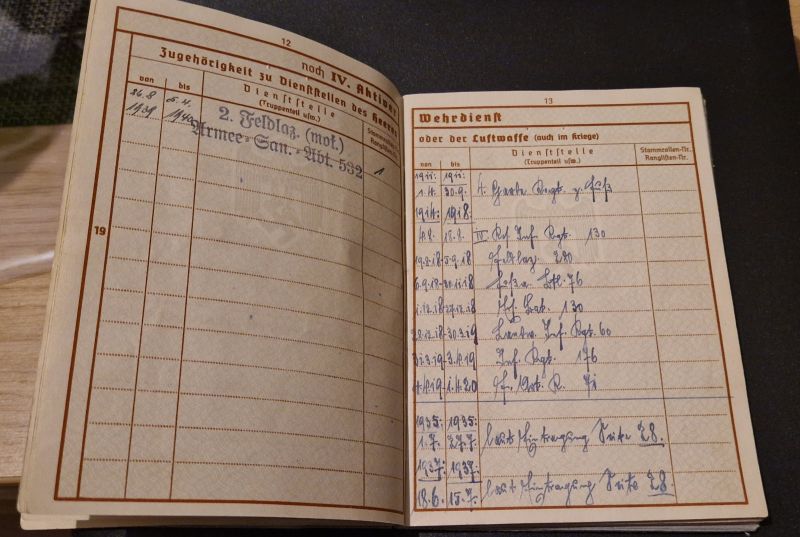 12
noch IV. Aktiver
Zugehörigkeit zu Dienststellen des Heeres
von bis Dienststelle
(Truppenteil usw.)
Stammrollen-Nr.
Ranglisten-Nr.
26.8 5.4.
1939 1940
2. Feldlaz. (mot.)
Armee-San.-Abt. 532
1
19
13
Wehrdienst
oder der Luftwaffe (auch im Kriege)
von bis Dienststelle
(Truppenteil usw.)
Stammrollen-Nr.
Ranglisten-Nr.
1911: 1911:
1.4. 30.9. 4. Garde Regt. z. Fuß
1914: 1918:
15.1. III Res. Inf. Regt. 130
19.8.18 5.9.18 Feldlaz. 280
6.9.18 30.11.18 76
1.12.18 27.12.18 130
28.12.18 30.3.19 Landw. Inf. Regt. 60
31.3.19 3.4.19 Inf. Regt. 176
4.4.19 1.4.20
1935: 1935:
1.7. 27.7. laut Eintragung Seite 28.
1937: 1937:
18.6. 15.7. laut Eintragung Seite 28.